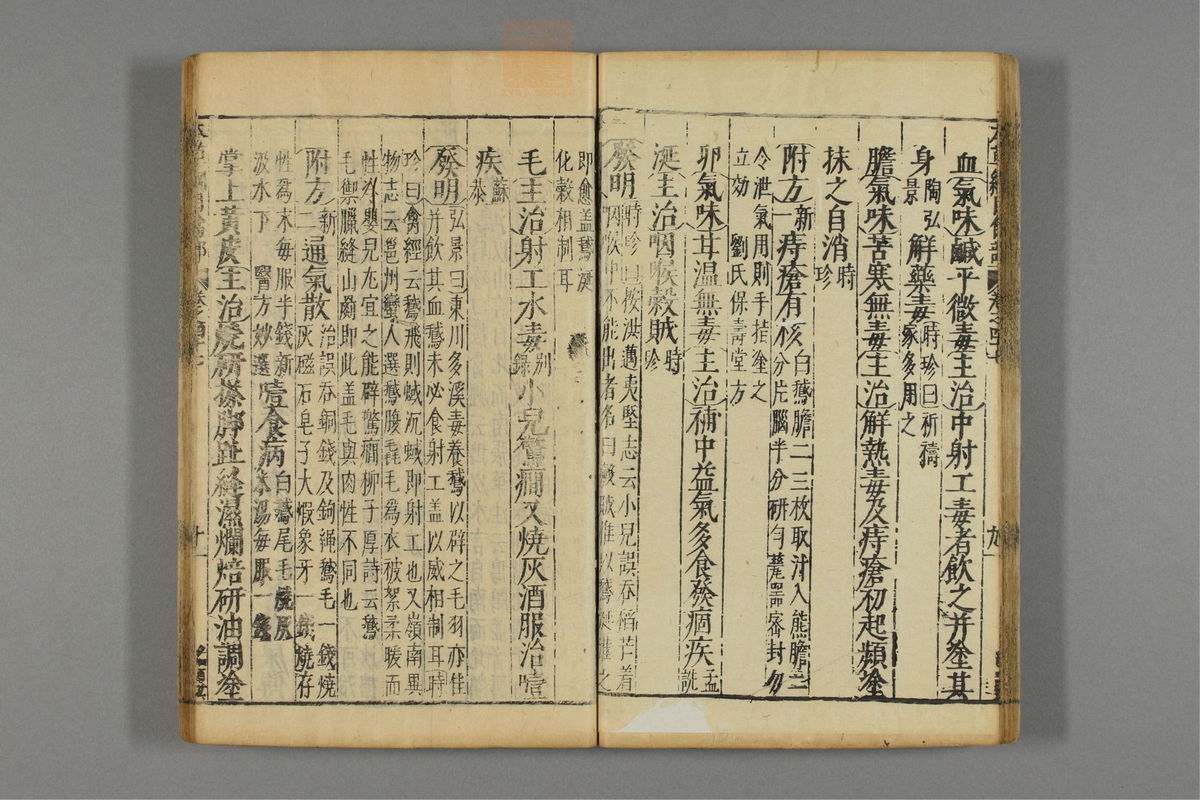 血氣味鹹平微毒主治中射工毒者飲之并塗其
身陶弘景解藥毒時珍曰祈禱家多用之
膽氣味苦寒無毒主治解熱毒及痔瘡初起頻塗
抹之自消時珍
附方一新痔瘡有核白鵝膽二三枚取汁入熊膽二分片腦半分研勻磁器密封勿
令泄氣用則手搽塗之立効劉氏保壽堂方
卵氣味甘溫無毒主治補中益氣多食發痼疾孟詵
涎主治咽喉穀賊時珍
發明時珍曰按洪邁夷堅志云小兒誤吞稻芒着咽喉中不能出者名曰穀賊惟以鵝涎灌之
即愈盖鵝涎化穀相制耳
毛主治射工水毒別錄小兒驚癎又燒灰酒服治噎
疾蘇恭
發明弘景曰東川多溪毒養鵝以辟之毛羽亦佳并飲其血鵝未必食射工盖以威相制耳時
珍曰禽經云鵝飛則蜮沉蜮即射工也又嶺南異物志云邕州蠻人選鵝腹毳毛為衣被絮柔暖而
性冷嬰兒尤宜之能辟驚癎柳子厚詩云鵝毛禦臘縫山罽即此盖毛與肉性不同也
附方二新通氣散治誤吞銅錢及鉤繩鵝毛一錢燒灰磁石皂子大煅象牙一錢燒存
性為末每服半錢新汲水下醫方妙選噎食病白鵝尾毛燒灰米湯每服一錢
掌上黃皮主治燒研搽脚趾縫濕爛焙研油調塗